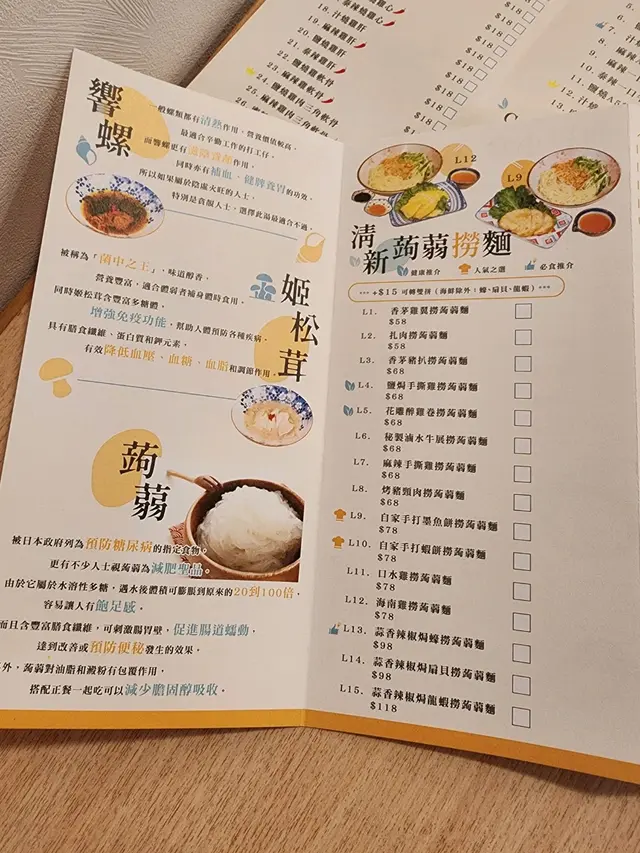 泰辣燒雞心
18. 汁燒雞肝
19. 麻辣雞肝
21. 泰辣雞肝
22. 鹽燒雞軟骨
23. 麻辣雞軟骨
24. 鹽燒雞肉三角軟骨
25. 麻辣雞肉三角軟骨
$18
$18
$18
$18
$18
$18
$18
響螺
一般螺類都有清熱作用，營養價值較高，
最適合辛勤工作的打工仔。
而響螺更有滋陰養顏作用，
同時亦有補血、健脾養胃的功效。
所以如果屬於陰虛火旺的人士，
特別是貧血人士，選擇此湯最適合不過。
姬松茸
被稱為「菌中之王」，味道醇香，
營養豐富，適合體弱者補身體時食用。
同時姬松茸含豐富多糖體，
增強免疫功能，幫助人體預防各種疾病。
具有膳食纖維、蛋白質和鉀元素，
有效降低血壓、血糖、血脂和調節作用。
蒟蒻
被日本政府列為預防糖尿病的指定食物，
更有不少人士視蒟蒻為減肥聖品。
由於它屬於水溶性多糖，遇水後體積可膨脹到原來的20到100倍，
容易讓人有飽足感。
而且含豐富膳食纖維，可刺激腸胃壁，促進腸道蠕動，
達到改善或預防便秘發生的效果。
外，蒟蒻對油脂和澱粉有包覆作用，
搭配正餐一起吃可以減少膽固醇吸收。
L12
L9
清新蒟蒻撈麵
健康推介
人氣之選
必食推介
+$15 可轉雙拼（海鮮除外：蠔、扇貝、龍蝦）
L1. 香茅雞翼撈蒟蒻麵
$58
L2. 扎肉撈蒟蒻麵
$58
L3. 香茅豬扒撈蒟蒻麵
$68
L4. 鹽焗手撕雞撈蒟蒻麵
$68
L5. 花雕醉雞卷撈蒟蒻麵
$68
L6. 秘製滷水牛展撈蒟蒻麵
$68
L7. 麻辣手撕雞撈蒟蒻麵
$68
L8. 烤豬頸肉撈蒟蒻麵
$68
L9. 自家手打墨魚餅撈蒟蒻麵
$78
L10. 自家手打蝦餅撈蒟蒻麵
$78
L11. 口水雞撈蒟蒻麵
$78
L12. 海南雞撈蒟蒻麵
$78
L13. 蒜香辣椒焗蠔撈蒟蒻麵
$98
L14. 蒜香辣椒焗扇貝撈蒟蒻麵
$98
L15. 蒜香辣椒焗龍蝦撈蒟蒻麵
$118